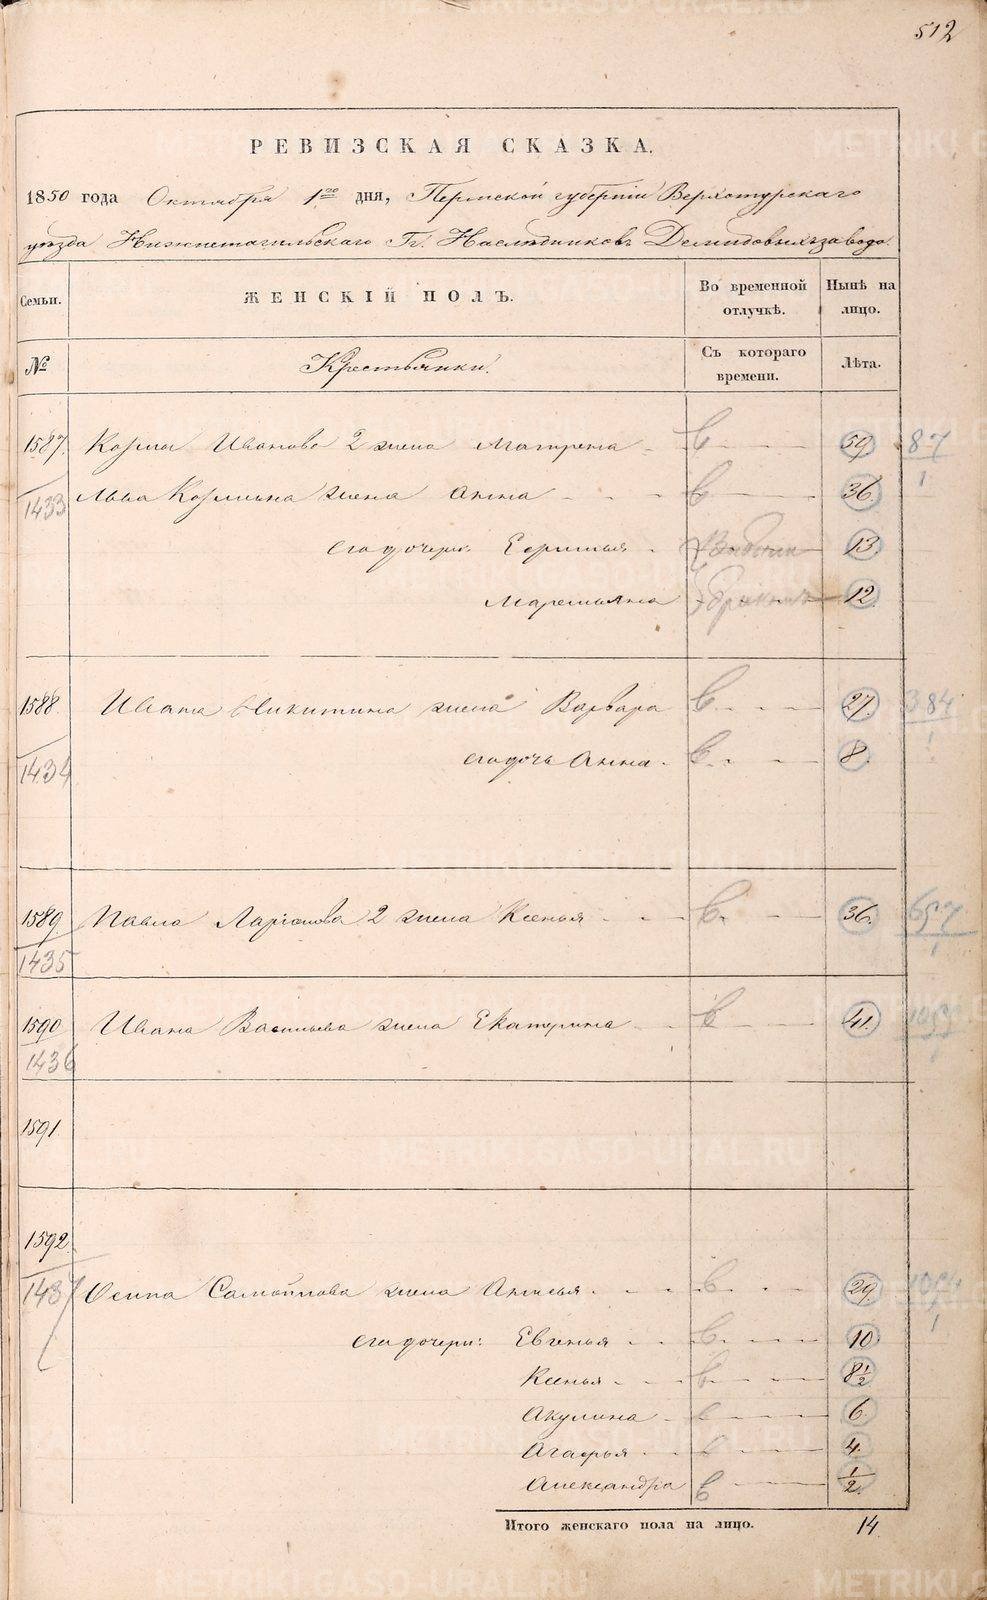 512
РЕВИЗСКАЯ СКАЗКА.
1850 года Октября 1го дня, Пермской губернiи Верхотурскаго
уѣзда Нижнетагильскаго Гг. Наслѣдниковъ Демидовыхъ завода.
Семьи. ЖЕНСКIЙ ПОЛЪ. Во временной отлучкѣ. Нынѣ на лицо.
№ Крестьянки. Съ котораго времени. Лѣта.
1587. Козмы Иванова 2 жена Матрена 59 87
1433 Льва Козмина жена Анна 36. 1
его дочери: Ефимья 13
Маремьяна 12.
1588. Ивана Никитина жена Варвара 27. 384
1434 его дочь Анна 8. 1
1589. Павла Ларiонова 2 жена Ксенья 36. 657
1435 1
1590 Ивана Васильева жена Екатерина 41.
1436 1
1591.
1592.
1437 Осипа Самойлова жена Анисья 29. 1054
его дочери: Евгенья 10 1
Ксенья 8 1/2
Акулина 6.
Агафья 4.
Александра 1/2.
Итого женскаго пола на лицо. 14
METRIKI.GASO-URAL.RU